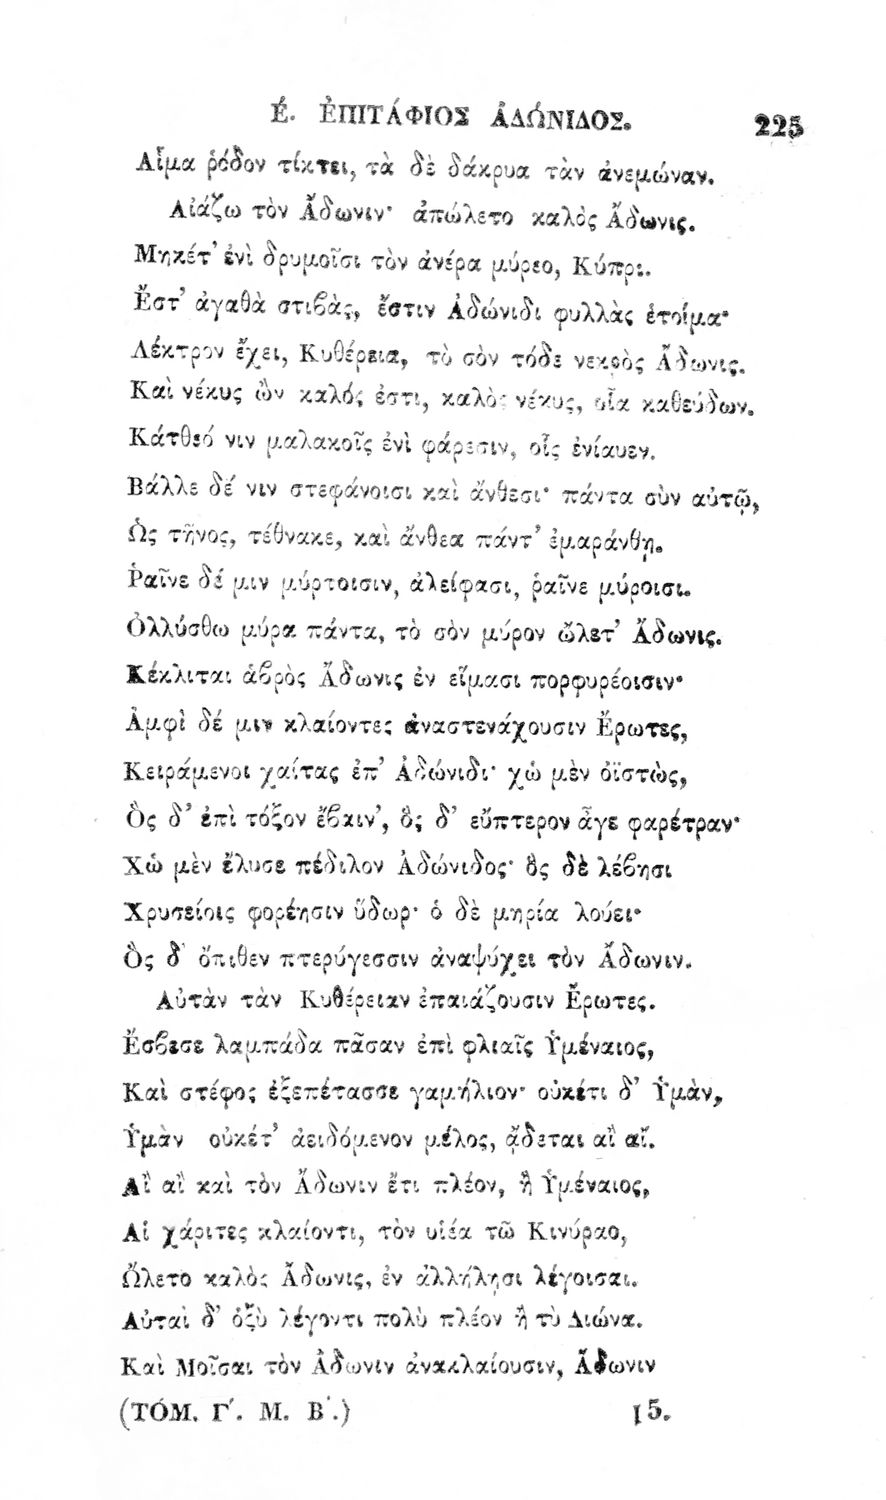 Ε΄. ἘΠΙΤΆΦΙΟΣ ἈΔΏΝΙΔΟΣ. 225
Αἷμα ῥόδον τίκτει, τὰ δὲ δάκρυα τὰν ἀνεμώναν.
Αἰάζω τὸν Ἄδωνιν· ἀπώλετο καλὸς Ἄδωνις.
Μηκέτ' ἐνὶ δρυμοῖσι τὸν ἀνέρα μύρεο, Κύπρι.
Ἔστ' ἀγαθὰ στιβὰς, ἔστιν Ἀδώνιδι φυλλὰς ἑτοίμα·
Λέκτρον ἔχει, Κυθέρεια, τὸ σὸν τόδε νεκρὸς Ἄδωνις.
Καὶ νέκυς ὢν καλός ἐστι, καλὸς νέκυς, οἷα καθεύδων.
Κάτθεό νιν μαλακοῖς ἐνὶ φάρεσιν, οἷς ἐνίαυεν.
Βάλλε δέ νιν στεφάνοισι καὶ ἄνθεσι· πάντα σὺν αὐτῷ,
Ὡς τῆνος, τέθνακε, καὶ ἄνθεα πάντ' ἐμαράνθη.
Ῥαῖνε δέ μιν μύρτοισιν, ἀλείφασι, ῥαῖνε μύροισι.
Ὀλλύσθω μύρα πάντα, τὸ σὸν μύρον ὤλετ' Ἄδωνις.
Κέκλιται ἁβρὸς Ἄδωνις ἐν εἵμασι πορφυρέοισιν·
Ἀμφὶ δέ μιν κλαίοντες ἀναστενάχουσιν Ἔρωτες,
Κειράμενοι χαίτας ἐπ' Ἀδώνιδι· χὠ μὲν ὀϊστὼς,
Ὃς δ' ἐπὶ τόξον ἔβαιν', ὃς δ' εὔπτερον ἆγε φαρέτραν·
Χὠ μὲν ἔλυσε πέδιλον Ἀδώνιδος· ὃς δὲ λέβησι
Χρυσείοις φορέησιν ὕδωρ· ὁ δὲ μηρία λούει·
Ὃς δ' ὄπιθεν πτερύγεσσιν ἀναψύχει τὸν Ἄδωνιν.
Αὐτὰν τὰν Κυθέρειαν ἐπαιάζουσιν Ἔρωτες.
Ἔσβεσε λαμπάδα πᾶσαν ἐπὶ φλιαῖς Ὑμέναιος,
Καὶ στέφος ἐξεπέτασσε γαμήλιον· οὐκέτι δ' Ὑμὰν,
Ὑμὰν οὐκέτ' ἀειδόμενον μέλος, ᾄδεται αἲ αἴ.
Αἲ αἲ καὶ τὸν Ἄδωνιν ἔτι πλέον, ἢ Ὑμέναιος,
Αἱ χάριτες κλαίοντι, τὸν υἱέα τῶ Κινύραο,
Ὤλετο καλὸς Ἄδωνις, ἐν ἀλλήλησι λέγοισαι.
Αὐταὶ δ' ὀξὺ λέγοντι πολὺ πλέον ἢ τὺ Διώνα.
Καὶ Μοῖσαι τὸν Ἄδωνιν ἀνακλαίουσιν, Ἄδωνιν
(ΤΌΜ. Γ΄. Μ. Β΄.) 15.